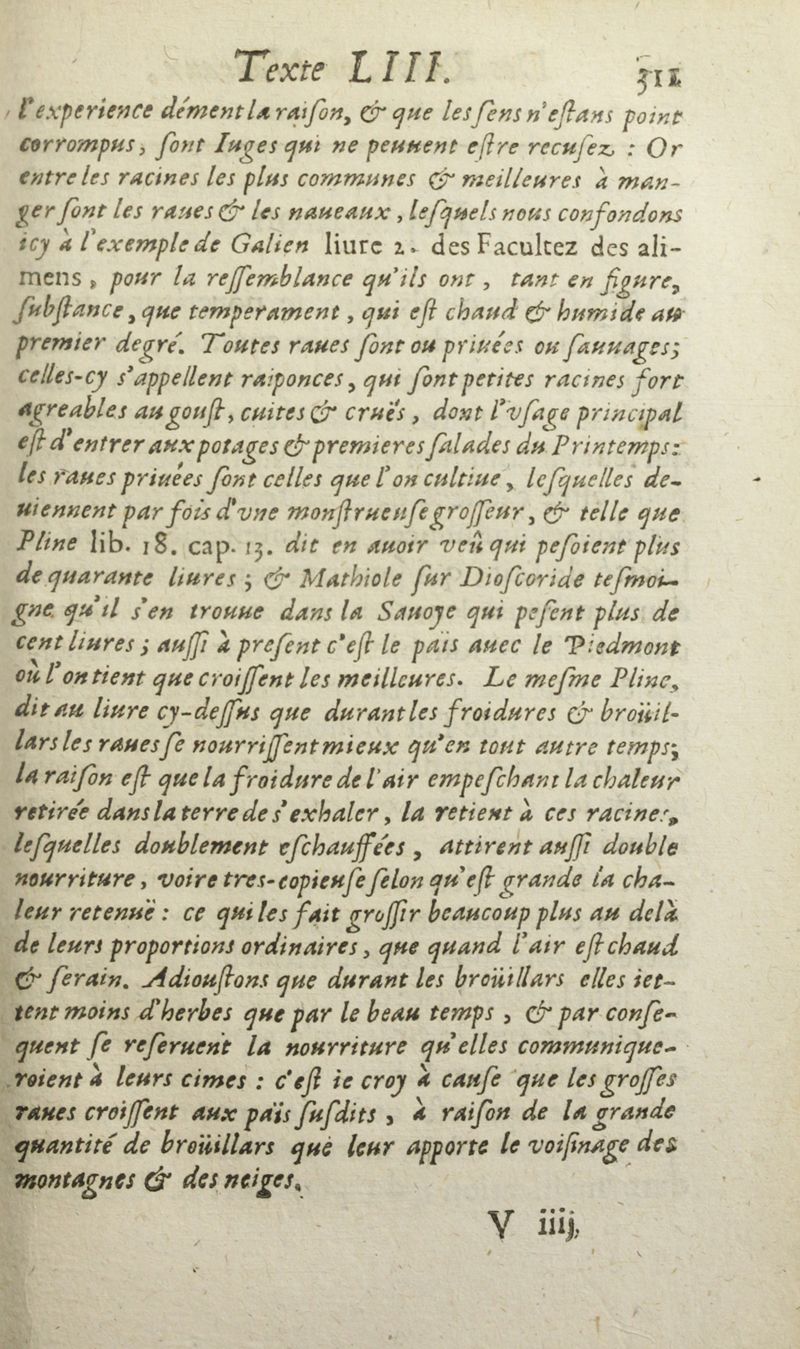 Texte LIII. 311
l'experience dément la raison, & que les sens n'estans point
corrompus, sont Iuges qui ne peuuent estre recusez : Or
entre les racines les plus communes & meilleures à man-
ger sont les raues & les naueaux, lesquels nous confondons
icy à l'exemple de Galien liure 2. des Facultez des ali-
mens, pour la ressemblance qu'ils ont, tant en figure,
substance, que temperament, qui est chaud & humide au
premier degré. Toutes raues sont ou priuées ou sauuages;
celles-cy s'appellent raiponces, qui sont petites racines fort
agreables au goust, cuites & cruës, dont l'vsage principal
est d'entrer aux potages & premieres salades du Printemps:
les raues priuées sont celles que l'on cultiue, lesquelles de-
uiennent par fois d'vne monstrueuse grosseur, & telle que
Pline lib. 18. cap. 13. dit en auoir veû qui pesoient plus
de quarante liures ; & Mathiole sur Dioscoride tesmoi-
gne qu'il s'en trouue dans la Sauoye qui pesent plus de
cent liures ; aussi à present c'est le païs auec le Piedmont
où l'on tient que croissent les meilleures. Le mesme Pline,
dit au liure cy-dessus que durant les froidures & broüil-
lars les raues se nourrissent mieux qu'en tout autre temps;
la raison est que la froidure de l'air empeschant la chaleur
retirée dans la terre de s'exhaler, la retient à ces racines,
lesquelles doublement eschauffées, attirent aussi double
nourriture, voire tres-copieuse selon qu'est grande la cha-
leur retenuë : ce qui les fait grossir beaucoup plus au delà
de leurs proportions ordinaires, que quand l'air est chaud
& serain. Adioustons que durant les broüillars elles iet-
tent moins d'herbes que par le beau temps, & par conse-
quent se reseruent la nourriture qu'elles communique-
roient à leurs cimes : c'est ie croy à cause que les grosses
raues croissent aux païs susdits, à raison de la grande
quantité de broüillars que leur apporte le voisinage des
montagnes & des neiges.
V iiij.